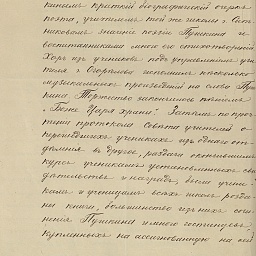 кималъ краткій біографическій очеркъ
поэта, учителемъ той же школы г. Сит-
никовымъ значеніе поэзіи Пушкина и
воспитанниками много его стихотвореній.
Хоръ изъ учениковъ подъ управленіемъ учи-
теля г. Озорнова исполнилъ нѣсколько
музыкальныхъ произведеній на слова Пуш-
кина. Торжество закончилось пѣніемъ
„Боже Царя храни“. Затѣмъ по проч-
теніи протокола Совѣта учителей о
переведенныхъ ученикахъ изъ одного от-
дѣленія въ другое, раздачи окончившимъ
курсъ ученикамъ установленныхъ сви-
дѣтельствъ и наградъ, всѣмъ учени-
камъ и ученицамъ всѣхъ школъ розда-
ны книги, большинство изъ нихъ сочи-
ненія Пушкина и много гостинцевъ,
купленныхъ на ассигнованную на сей